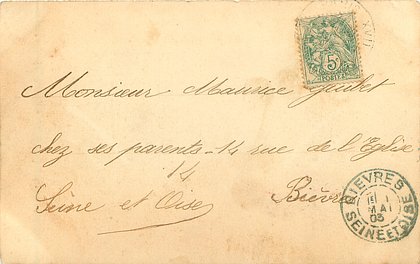 5c
POSTES
XVII
Monsieur Maurice
chez ses parents - 14 rue de l'Eglise
14
Seine et Oise Bièvres
BIEVRES
1
MAI
03
SEINE ET OISE